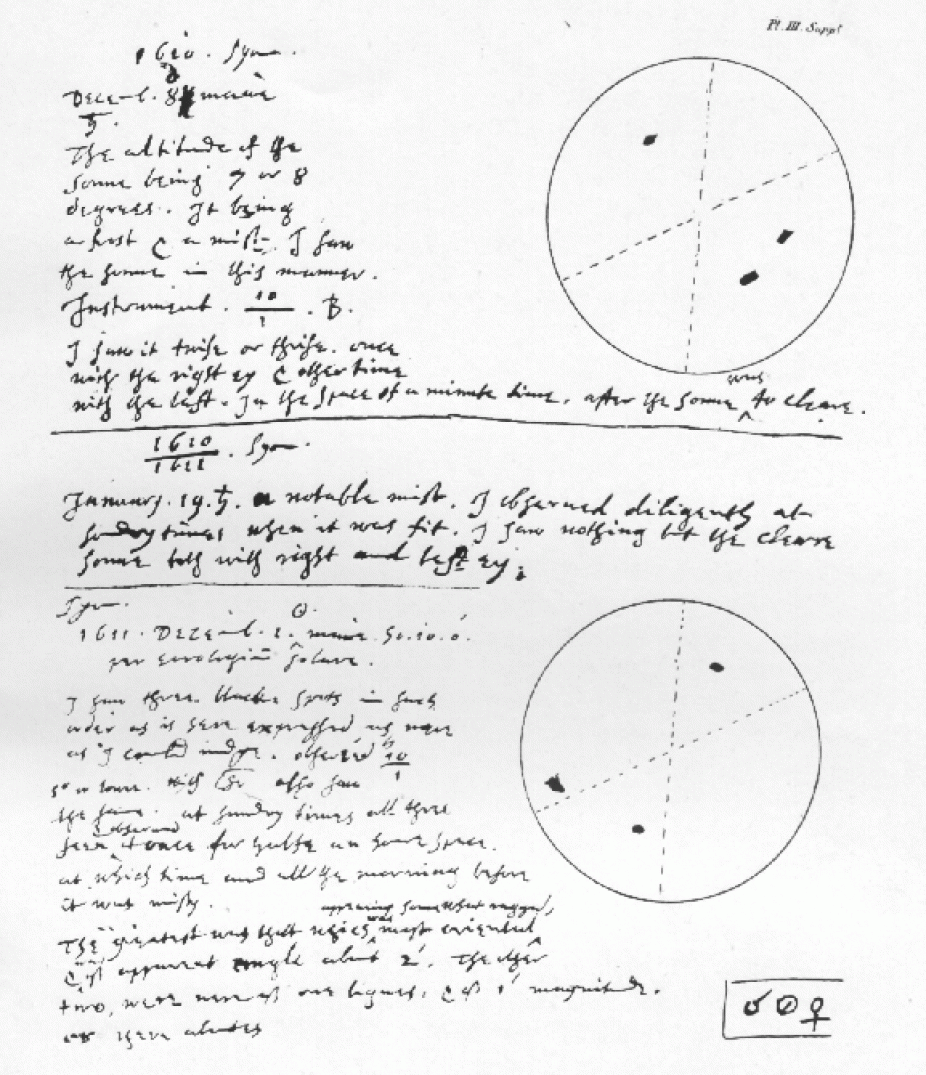 Pl. III. Suppl
1610. Syon.
Decemb. 8 mane
♄.
The altitude of the
Sonne being 7 or 8
degrees. It being
a frost & a mist. I saw
the sonne in this manner.
Instrument. 10/1. B.
I saw it twise or thrise. once
with the right ey & other time
with the left. In the space of a minute time, after the Sonne was to cleare.
1610/1611. Syon.
January. 19. ♄. a notable mist. I observed diligently at
sundry times when it was fit. I saw nothing but the cleare
Sonne both with right and left ey.
Syon.
☉.
1611. Decemb. 1. mane. 10. 0.
per horologium solare.
I saw three blacke spots in such
order as is here expressed as nere
as I could judge. observed 10/1
with also saw
the same. at sundry times all three
seen & observed at once for halfe an houre space.
at which time and all the morning before
it was misty.
appearing somewhat ragged,
The greatest was that which was most oriental
& of apparent angle about 2'. The other
two, were nere of one bignes, & of 1' magnitude.
or there aboutes
♂ ☉ ♀